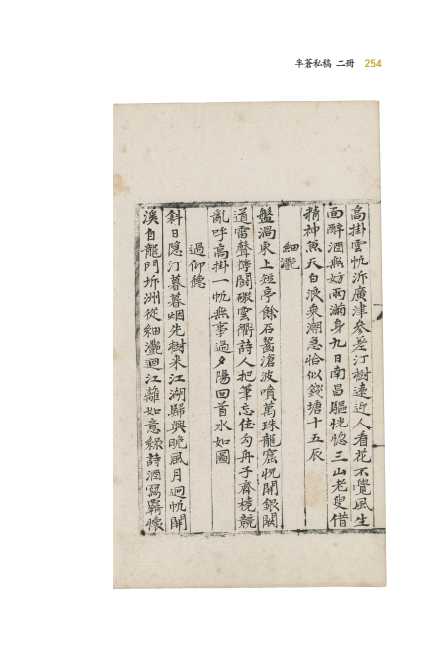 半蒼私稿 二冊 254
高掛雲帆泝廣津參差汀樹遠近人看花不覺風生
面醉酒無妨雨滿身九日南昌驅恍惚三山老叟借
精神魚天白浪乘潮急恰似錢塘十五辰
細灔
盤渦東上短亭餘石齧滄波噴萬珠龍窟怳開銀闕
道雷聲馎鬪礙雲衢詩人把筆忘佳句舟子齊橈競
亂呼高掛一帆無事過夕陽回首水如圖
過仰德
斜日隱汀暮暮烟先樹來江湖歸興晚風月迥帆開
溪自龍門坼洲從細灔迴江蘺如意綠詩酒寫覊懷